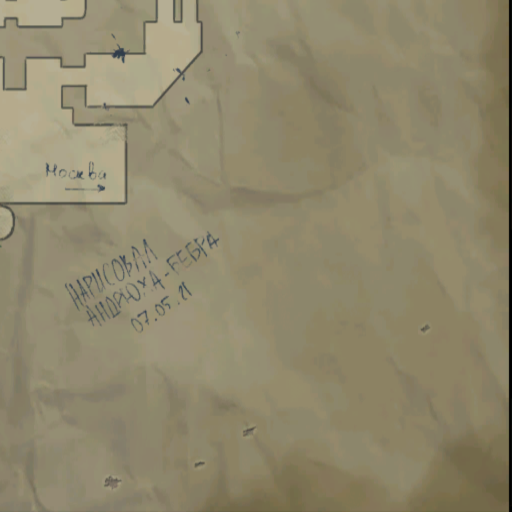 Москва
НАРИСОВАЛ
АНДРЮХА-ЗЕБРА
07.05.11